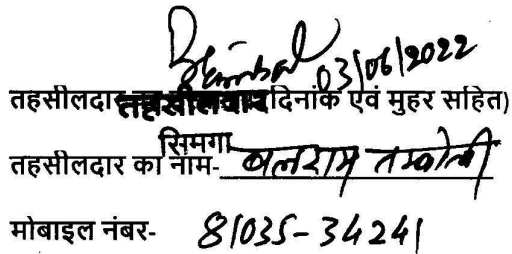 03/06/2022
तहसीलदार तहसीलदार दिनांक एवं मुहर सहित)
सिमगा
तहसीलदार का नाम- बलराम तम्बोली
मोबाइल नंबर- 81035-34241